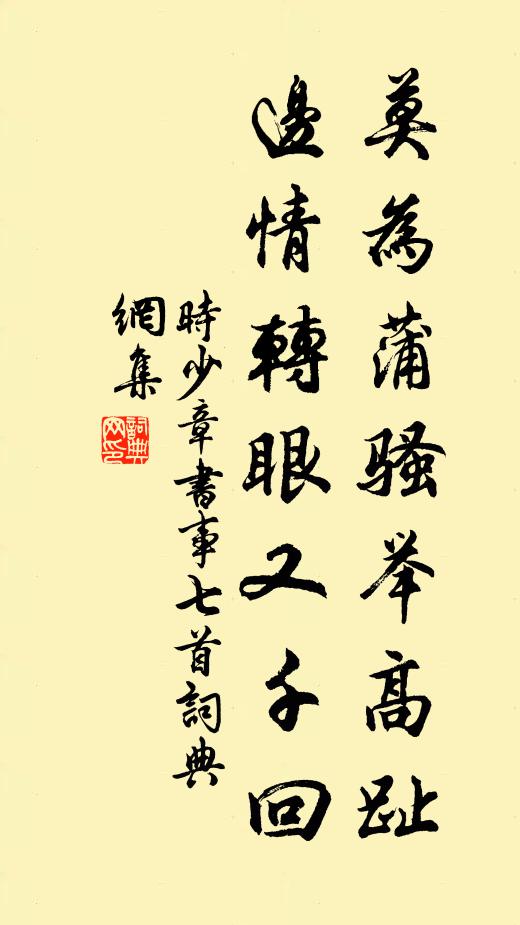 莫為蒲骚举高趾
邊情轉眼又千回
時少章書事七首詞典
網集
詞典网印